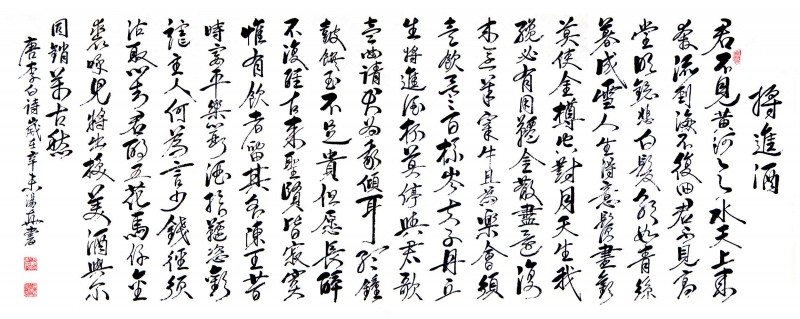 將進酒
君不見黃河之水天上來
奔流到海不復回君不見高
堂明鏡悲白髮朝如青絲
暮成雪人生得意須盡歡
莫使金樽空對月天生我
必有用千金散盡還復
來烹羊宰牛且為樂會須
一飲三百杯岑夫子丹丘
生將進酒杯莫停與君歌
壹曲請君為我傾耳聽鐘
鼓饌玉不足貴但願長醉
不復醒古來聖賢皆寂寞
惟有飲者留其名陳王昔
時宴平樂斗酒十千恣歡
謔主人何為言少錢徑須
沽取對君酌五花馬仟金
裘呼兒將出換美酒與爾
同銷萬古愁
唐李白詩歲在辛未湯書